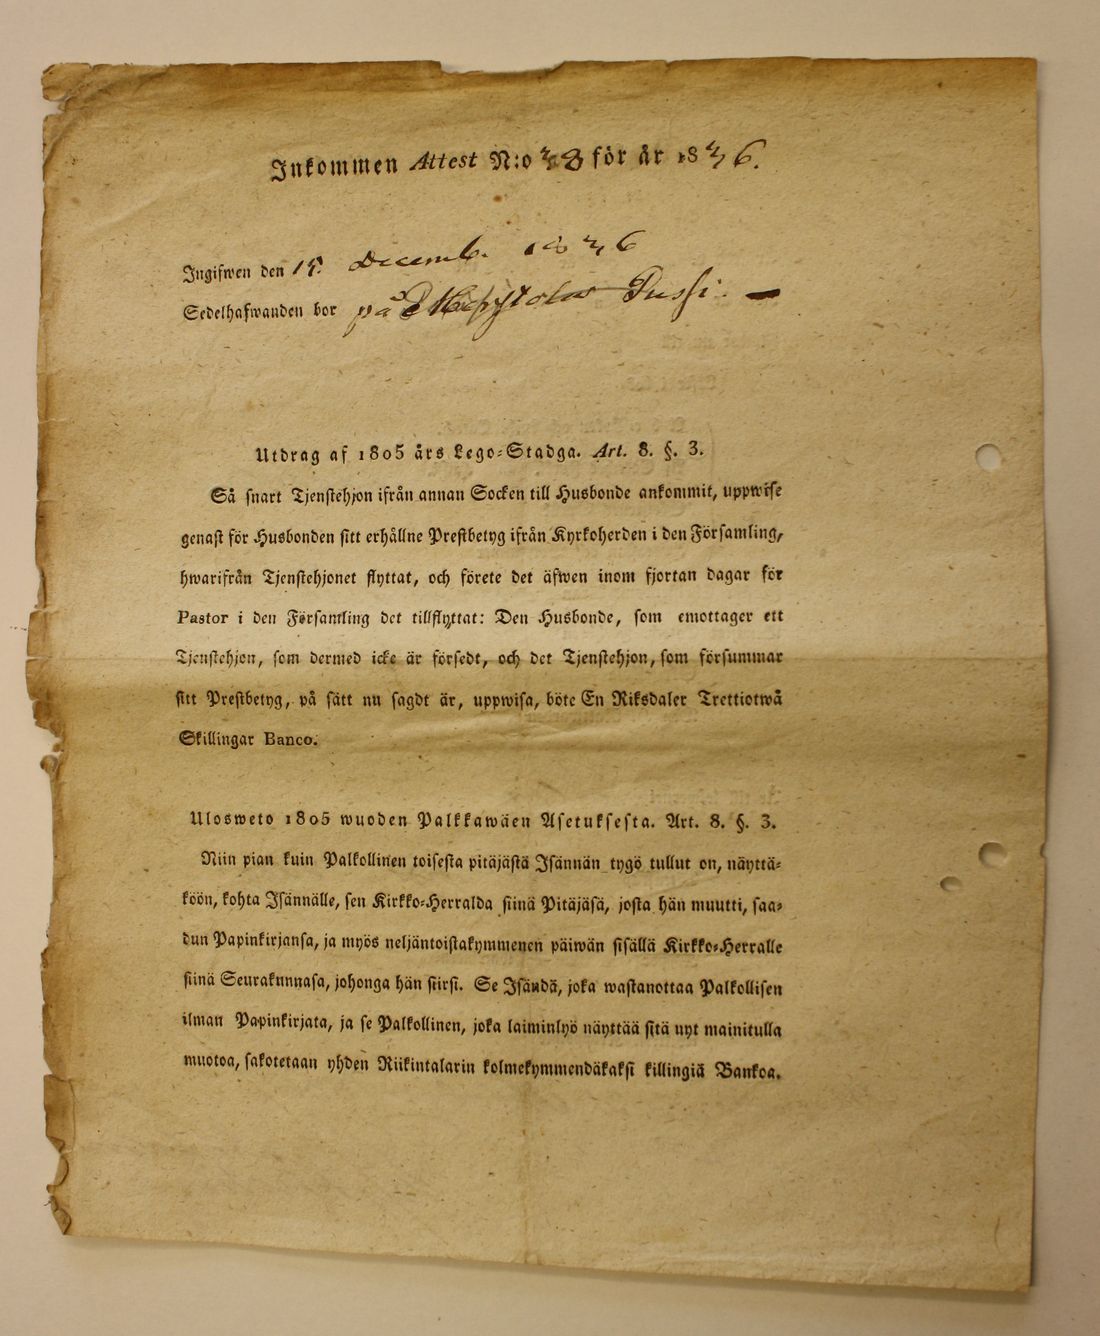 Inkommen Attest N:o 38 för år 1836.
Ingifwen den 15. Decemb. 1836
Sedelhafwanden bor på Pussi.
Utdrag af 1805 års Lego-Stadga. Art. 8. §. 3.
Så snart Tjenstehjon ifrån annan Socken till Husbonde ankommit, uppwise
genast för Husbonden sitt erhållne Prestbetyg ifrån Kyrkoherden i den Församling,
hwarifrån Tjenstehjonet flyttat, och förete det äfwen inom fjortan dagar för
Pastor i den Församling det tillflyttat: Den Husbonde, som emottager ett
Tjenstehjon, som dermed icke är försedt, och det Tjenstehjon, som försummar
sitt Prestbetyg, på sätt nu sagdt är, uppwisa, böte En Riksdaler Trettiotwå
Skillingar Banco.
Ulosweto 1805 wuoden Palkkawäen Asetuksesta. Art. 8. §. 3.
Niin pian kuin Palkollinen toisesta pitäjästä Isännän tygö tullut on, näyttä-
köön, kohta Isännälle, sen Kirkko-Herralda siinä Pitäjäsä, josta hän muutti, saa-
dun Papinkirjansa, ja myös neljäntoistakymmenen päiwän sisällä Kirkko-Herralle
siinä Seurakunnasa, johonga hän siirsi. Se Isändä, joka wastanottaa Palkollisen
ilman Papinkirjata, ja se Palkollinen, joka laiminlyö näyttää sitä nyt mainitulla
muotoa, sakotetaan yhden Riikintalarin kolmekymmendäkaksi killingiä Bankoa.